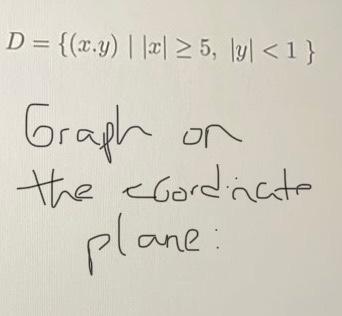 D = {(x.y) | |x| ≥ 5, |y| < 1 }
Graph on
the coordinate
plane: